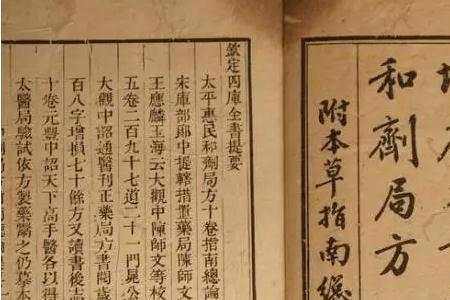 和劑局方
附本草指南總
欽定四庫全書提要
太平惠民和劑局方十卷指南總論
宋庫部郎中提轄措置藥局陳師文
王應麟玉海云大觀中陳師文等校
五卷二百九十七道二十一門晁公
大觀中詔通醫刊正藥局方書閱歲
百八字增損七十條方又讀書後志
十卷元豐中詔天下高手醫各以得
太醫局驗試依方製藥鬻之仍摹本